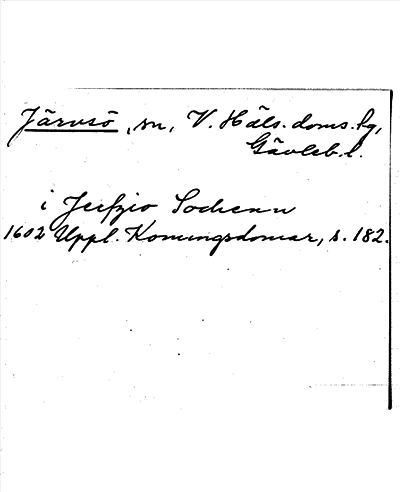 Järvsö, sn, V. Häls. doms.hg,
Gävleb.l.
i Jerfzio Sochenn
1602 Uppl. Konungsdomar, s. 182.